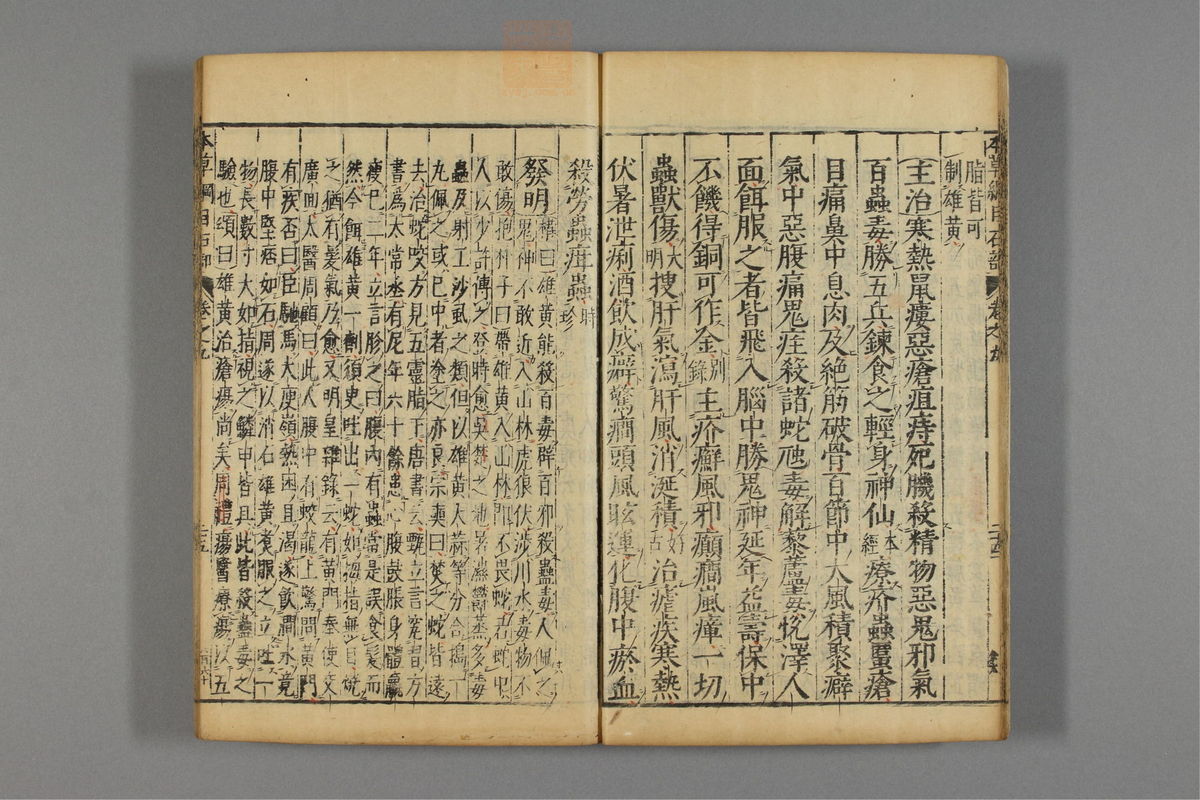 本草綱目石部 卷之九
脂皆可
制雄黃
主治寒熱鼠瘻惡瘡疽痔死肌殺精物惡鬼邪氣
百蟲毒勝五兵鍊食之輕身神仙本經療疥蟲䘌瘡
目痛鼻中息肉及絶筋破骨百節中大風積聚癖
氣中惡腹痛鬼疰殺諸蛇虺毒解藜蘆毒悅澤人
面餌服之者皆飛入腦中勝鬼神延年益壽保中
不饑得銅可作金別錄主疥癬風邪癲癎嵐瘴一切
蟲獸傷大明搜肝氣瀉肝風消涎積好古治瘧疾寒熱
伏暑泄痢酒飲成癖驚癎頭風眩運化腹中瘀血
殺勞蟲疳蟲時珍
發明權曰雄黃能殺百毒辟百邪殺蠱毒人佩之
鬼神不敢近入山林虎狼伏涉川水毒物不
敢傷抱朴子曰帶雄黃入山林即不畏蛇若蛇中
人以少許傅之登時愈吳楚之地暑濕鬱蒸多毒
蟲及射工沙虱之類但以雄黃大蒜等分合搗一
丸佩之或已中者塗之亦良宗奭曰焚之蛇皆遠
去治蛇咬方見五靈脂下唐書云甄立言究習方
書爲太常丞有尼年六十餘患心腹鼓脹身體羸
瘦已二年立言胗之曰腹內有蟲當是誤食髮而
然令餌雄黃一劑須臾吐出一蛇如拇指無目燒
之猶有髮氣乃愈又明皇雜錄云有黃門奉使交
廣回太醫周顧曰此人腹中有蛟龍上驚問黃門
有疾否曰臣馳馬大庾嶺熱困且渴遂飲澗水竟
腹中堅痞如石周遂以消石雄黃煮服之立吐一
物長數寸大如指視之鱗甲皆具此皆殺蠱毒之
驗也頌曰雄黃治瘡瘍尚矣周禮瘍醫療瘍以五
本草綱目石部 卷之九